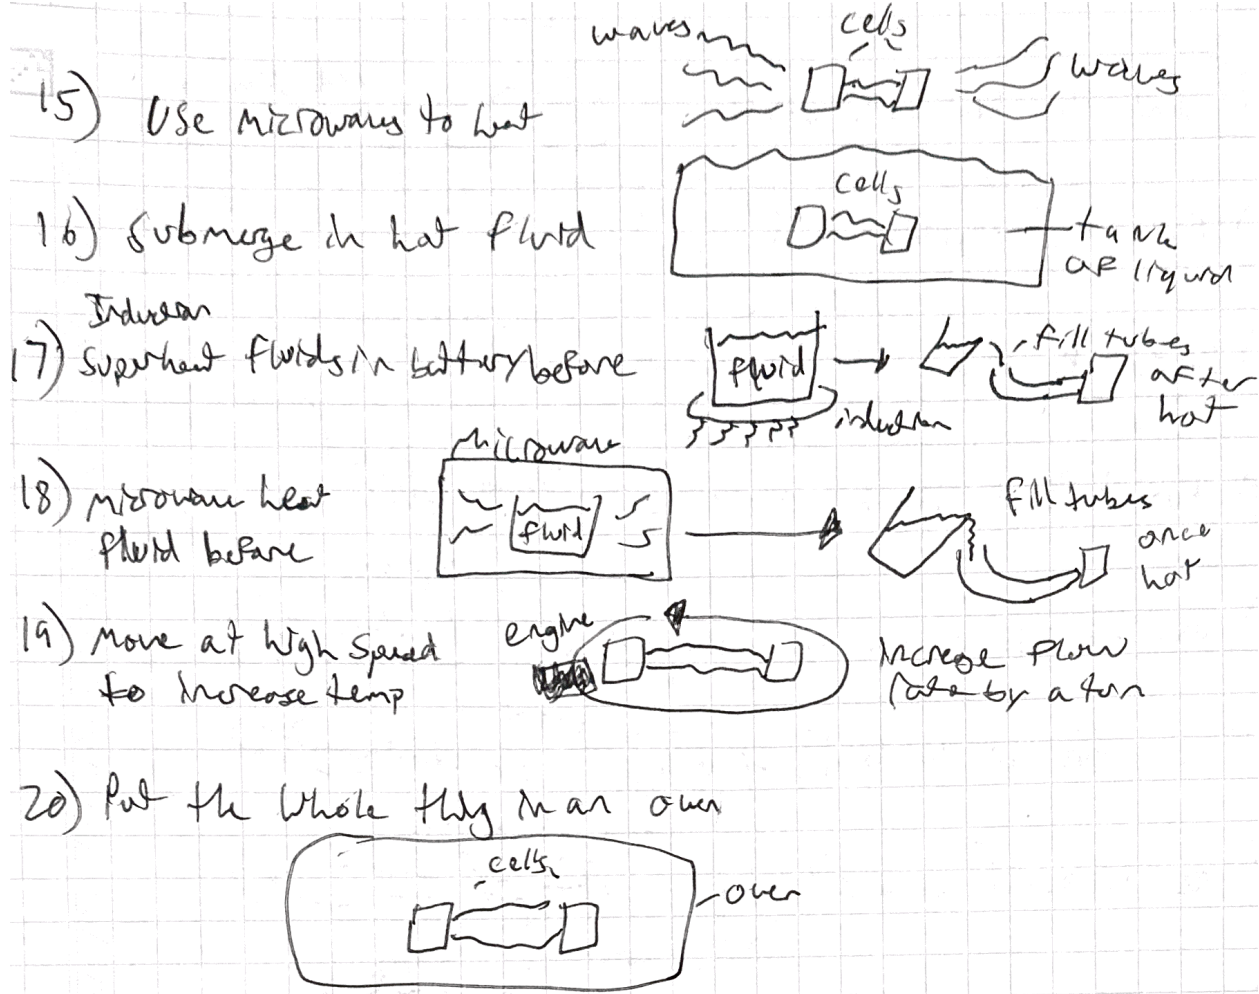 waves
cells
waves
15) Use microwaves to heat
cells
16) Submerge in hot fluid
tank
of liquid
Induction
17) Superheat fluids in battery before
fluid
induction
fill tubes
after
hot
Microwave
18) Microwave heat
fluid before
fluid
fill tubes
once
hot
19) Move at high speed
to increase temp
engine
Increase flow
rate by a ton
20) Put the whole thing in an oven
cells
oven